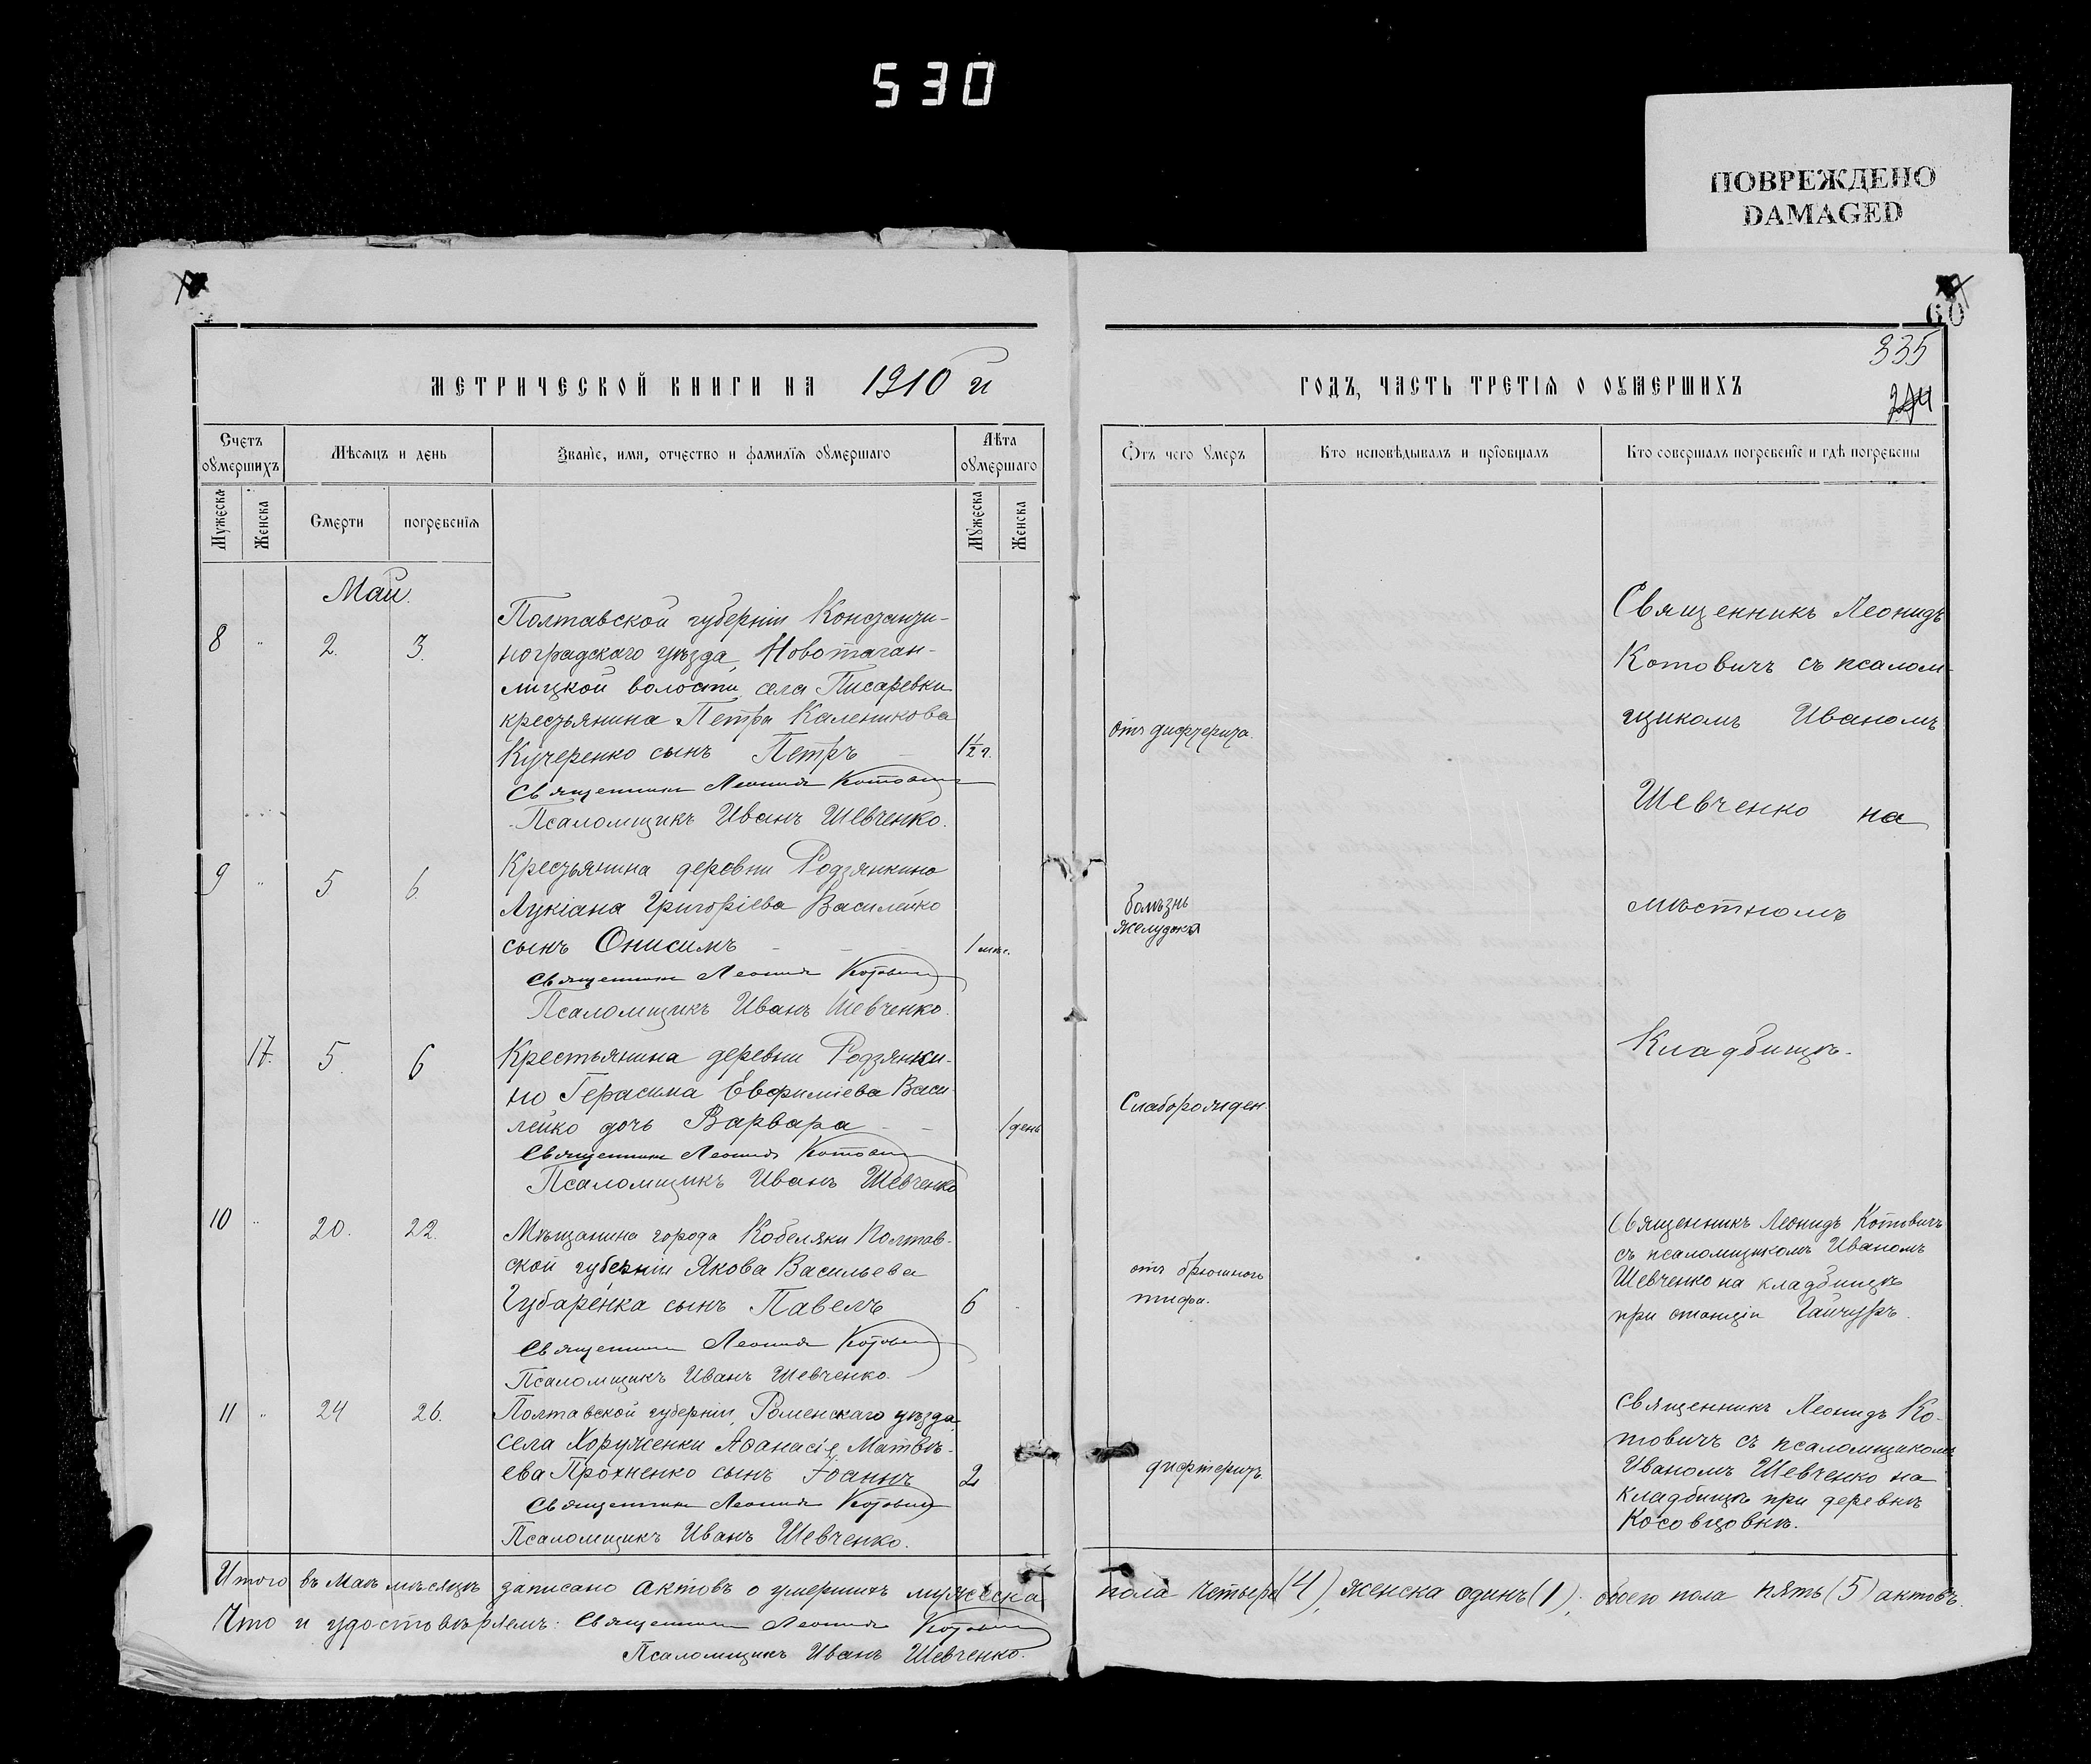 530
ПОВРЕЖДЕНО
DAMAGED
60
335
МЕТРИЧЕСКОЙ КНИГИ НА 1910 й
ГОДЪ, ЧАСТЬ ТРЕТІЯ О ОУМЕРШИХЪ
Счетъ оумершихъ
Мѣсяцъ и день
Званіе, имя, отчество и фамилія оумершаго
Лѣта оумершаго
Отъ чего умеръ
Кто исповѣдывалъ и пріобщалъ
Кто совершалъ погребеніе и гдѣ погребены
Мужеска
Женска
Смерти
погребенія
Мужеска
Женска
Май.
8 " 2. 3.
Полтавской губерніи Константи-
ноградскаго уѣзда, Новотаган-
лицкой волости, села Писаревки
крестьянина Петра Каленикова
Кучеренко сынъ Петръ — 1½ г.
Священникъ Леонидъ Котовичъ
Псаломщикъ Иванъ Шевченко.
отъ дифтерита.
Священникъ Леонидъ
Котовичъ съ псалом-
щикомъ Иваномъ
Шевченко на
мѣстномъ
Кладбищѣ.
9 " 5 6.
Крестьянина деревни Родзянкино
Лукіана Григоріева Василейко
сынъ Онисимъ - - - 1 мѣс.
Священникъ Леонидъ Котовичъ
Псаломщикъ Иванъ Шевченко.
болѣзнь
желудка
17. 5. 6
Крестьянина деревни Родзянки-
но Герасима Евфиміева Васи-
лейко дочь Варвара - - 1 день
Священникъ Леонидъ Котовичъ
Псаломщикъ Иванъ Шевченко
Слаборожден.
10 " 20. 22.
Мѣщанина города Кобеляки Полтав-
ской губерніи Якова Васильева
Губаренка сынъ Павелъ 6
Священникъ Леонидъ Котовичъ
Псаломщикъ Иванъ Шевченко.
отъ брюшного
тифа.
Священникъ Леонидъ Котовичъ
съ псаломщикомъ Иваномъ
Шевченко на кладбищѣ
при станціи Гайчуръ.
11 " 24 26.
Полтавской губерніи, Роменскаго уѣзда,
села Хоруженки Аѳанасія Матвѣ-
ева Прохненко сынъ Іоаннъ 2
Священникъ Леонидъ Котовичъ
Псаломщикъ Иванъ Шевченко.
дифтеритъ.
Священникъ Леонидъ Ко-
товичъ съ псаломщикомъ
Иваномъ Шевченко на
кладбищѣ при деревнѣ
Косовцовкѣ.
Итого въ Маѣ мѣсяцѣ записано актовъ о умершихъ мужеска пола четыре (4), женска одинъ (1); обоего пола пять (5) актовъ.
Что и удостовѣряемъ: Священникъ Леонидъ Котовичъ
Псаломщикъ Иванъ Шевченко.